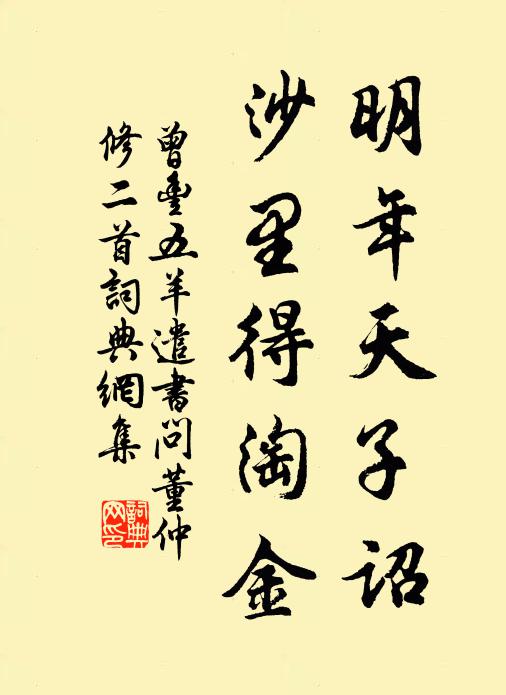 明年天子詔
沙里得淘金
曾豊五羊遣書問董仲
修二首詞典網集
詞典
网印